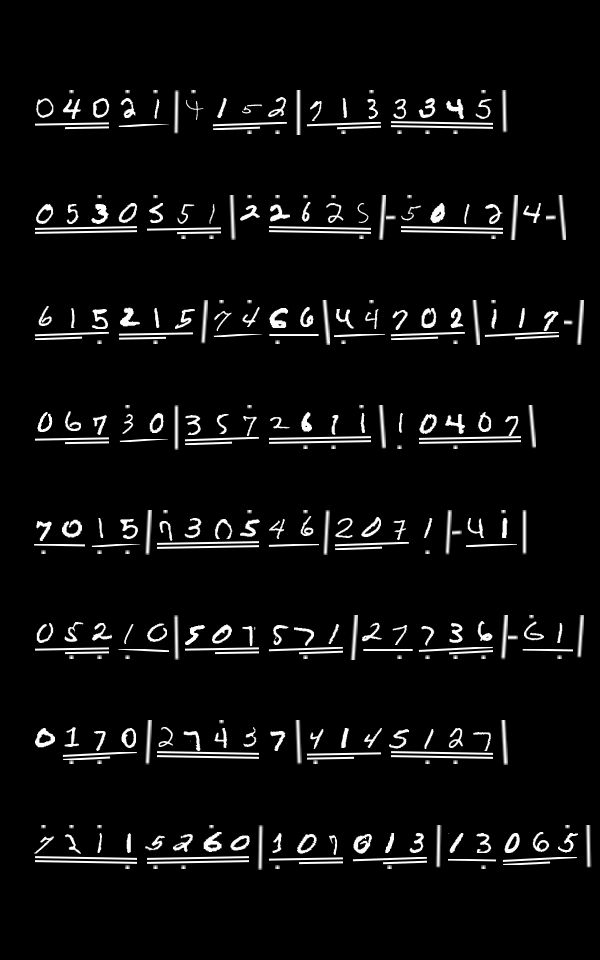 04021|4152|7133345
0530551|22625|-5012|4-|
615215|7466|44702|117-|
06730|3572611|10407
7015|730546|2071|-41|
05210|507571|27736|-61|
0170|27437|4145127|
72115260|107013|13065|